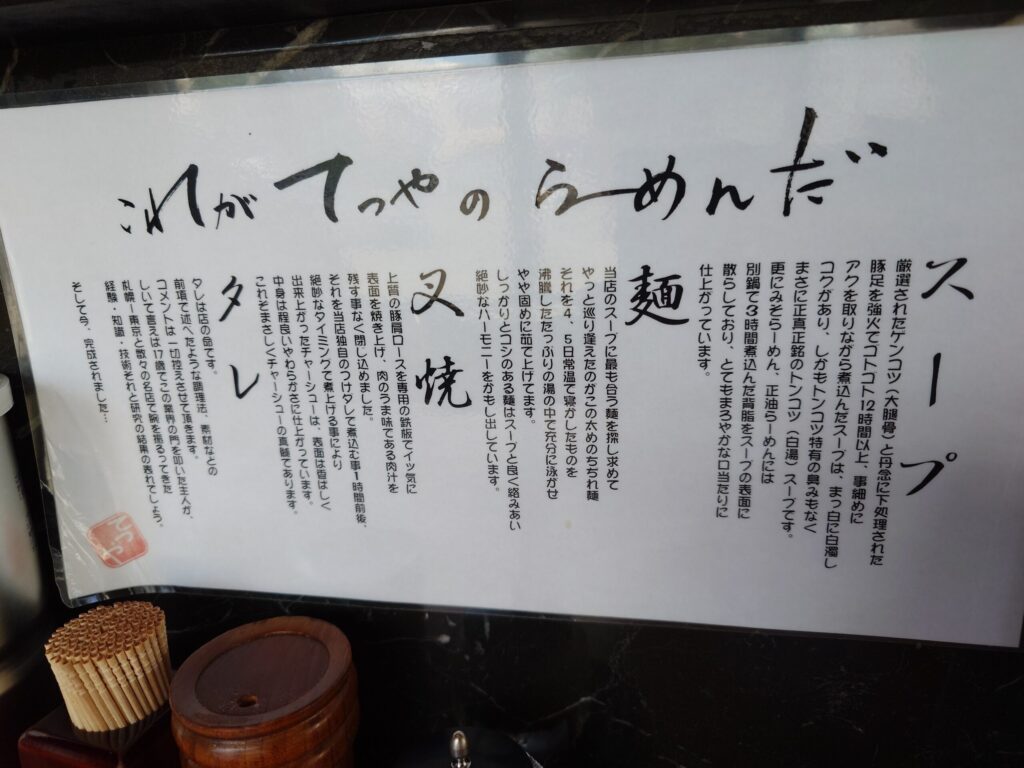 これがてつやのらーめんだ
スープ
厳選されたゲンコツ(大腿骨)と丹念に下処理された
豚足を強火でコトコト12時間以上、事細めに
アクを取りながら煮込んだスープは、まっ白に白濁し
コクがあり、しかもトンコツ特有の臭みもなく
まさに正真正銘のトンコツ(白湯)スープです。
更にみそらーめん、正油らーめんには
別鍋で3時間煮込んだ背脂をスープの表面に
散らしており、とてもまろやかな口当たりに
仕上がっています。
麺
当店のスープに最も合う麺を探し求めて
やっと巡り逢えたのがこの太めのちぢれ麺
それを4、5日常温で寝かしたものを
沸騰したたっぷりの湯の中で充分に泳がせ
やや固めに茹で上げてます。
しっかりとコシのある麺はスープと良く絡みあい
絶妙なハーモニーをかもし出しています。
叉焼
上質の豚肩ロースを専用の鉄板でイッ気に
表面を焼き上げ、肉のうま味である肉汁を
残す事なく閉じ込めました。
それを当店独自のつけダレで煮込む事1時間前後、
絶妙なタイミングで煮上げる事により
出来上がったチャーシューは、表面は香ばしく
中身は程良いやわらかさに仕上がっています。
これぞまさしくチャーシューの真髄であります。
タレ
タレは店の命です。
前項で述べたような調理法、素材などの
コメントは一切控えさせて頂きます。
しいて言えば17歳でこの業界の門を叩いた主人が、
札幌ー東京と数々の名店で腕を振るってきた
経験・知識・技術それと研究の結果の表れでしょう。
そして今、完成されました…
てつや